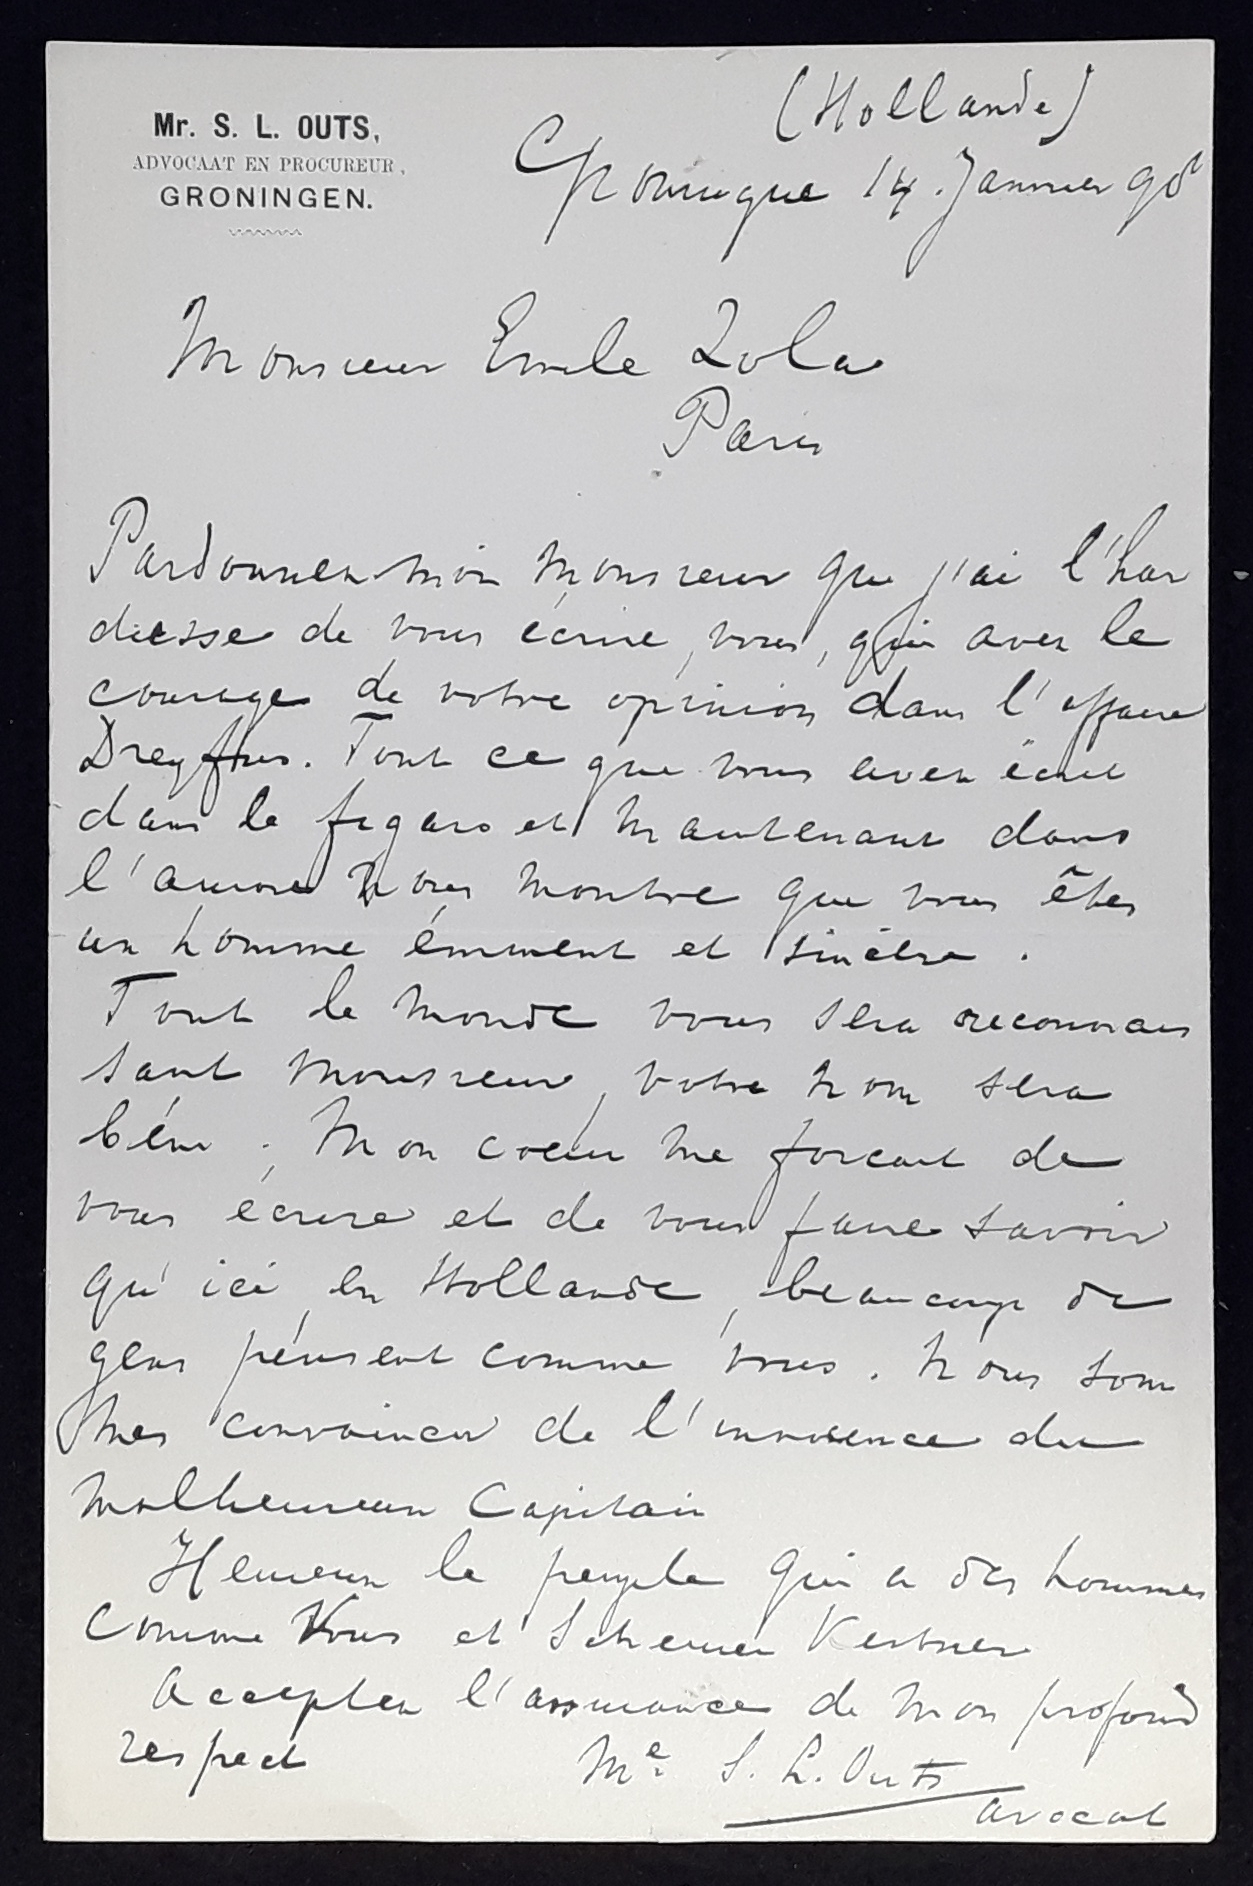 Mr. S. L. OUTS,
ADVOCAAT EN PROCUREUR,
GRONINGEN.
(Hollande)
Groningue 14. Janvier 98
Monsieur Emile Zola
Paris
Pardonnez-moi Monsieur que j'ai l'har
diesse de vous écrire, vous, qui avez le
courage de votre opinion dans l'affaire
Dreyfus. Tout ce que vous avez écrit
dans le figaro et maintenant dans
l'aurore nous montre que vous êtes
un homme éminent et sincère.
Tout le monde vous sera reconnais
sant Monsieur, votre nom sera
béni. Mon coeur me forcait de
vous écrire et de vous faire savoir
qu'ici, en Hollande, beaucoup de
gens pensent comme vous. Nous som
mes convaincu de l'innocence du
malheureux Capitain
Heureux le peuple qui a des hommes
Comme Vous et Scheurer Kestner
Acceptez l'assurance de mon profond
respect
Me S. L. Outs
avocat